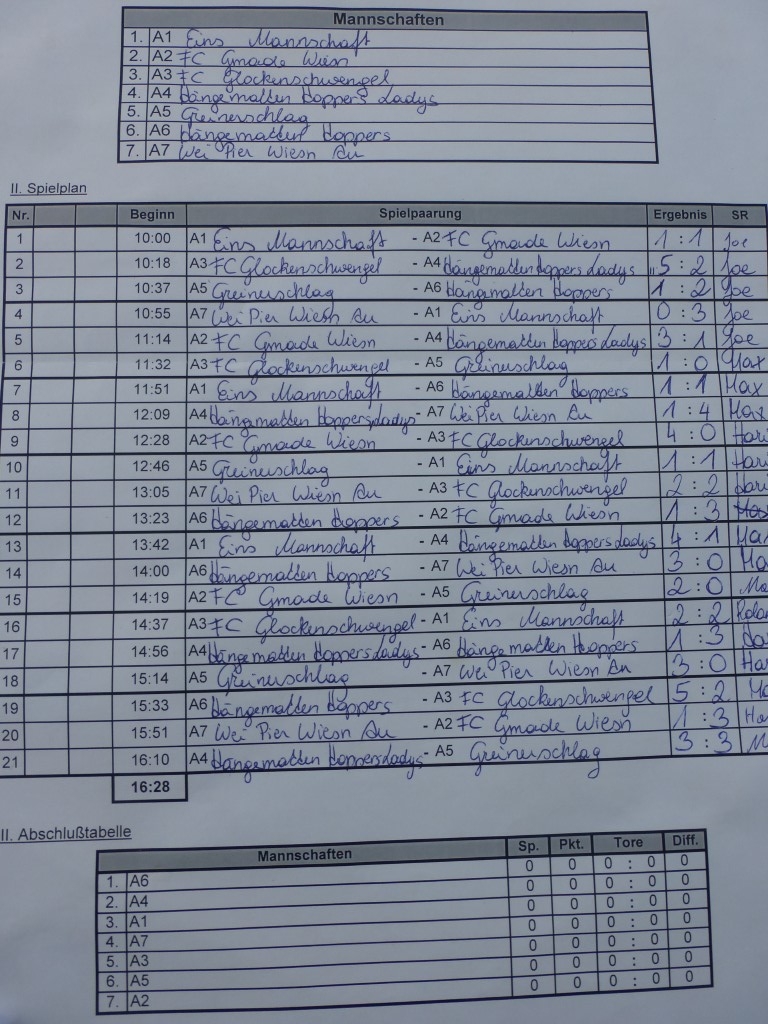 Mannschaften
1. A1 Eins Mannschaft
2. A2 FC Gmade Wiesn
3. A3 FC Glockenschwengel
4. A4 Hängematten Hoppers Ladys
5. A5 Greinerschlag
6. A6 Hängematten Hoppers
7. A7 Wei Pier Wiesn Au
II. Spielplan
Nr. Beginn Spielpaarung Ergebnis SR
1 10:00 A1 Eins Mannschaft - A2 FC Gmade Wiesn 1 : 1 Joe
2 10:18 A3 FC Glockenschwengel - A4 Hängematten Hoppers Ladys 5 : 2 Joe
3 10:37 A5 Greinerschlag - A6 Hängematten Hoppers 1 : 2 Joe
4 10:55 A7 Wei Pier Wiesn Au - A1 Eins Mannschaft 0 : 3 Joe
5 11:14 A2 FC Gmade Wiesn - A4 Hängematten Hoppers Ladys 3 : 1 Joe
6 11:32 A3 FC Glockenschwengel - A5 Greinerschlag 1 : 0 Max
7 11:51 A1 Eins Mannschaft - A6 Hängematten Hoppers 1 : 1 Max
8 12:09 A4 Hängematten Hoppers Ladys - A7 Wei Pier Wiesn Au 1 : 4 Max
9 12:28 A2 FC Gmade Wiesn - A3 FC Glockenschwengel 4 : 0 Hari
10 12:46 A5 Greinerschlag - A1 Eins Mannschaft 1 : 1 Hari
11 13:05 A7 Wei Pier Wiesn Au - A3 FC Glockenschwengel 2 : 2 Hari
12 13:23 A6 Hängematten Hoppers - A2 FC Gmade Wiesn 1 : 3
13 13:42 A1 Eins Mannschaft - A4 Hängematten Hoppers Ladys 4 : 1 Max
14 14:00 A6 Hängematten Hoppers - A7 Wei Pier Wiesn Au 3 : 0 Ma
15 14:19 A2 FC Gmade Wiesn - A5 Greinerschlag 2 : 0 Ma
16 14:37 A3 FC Glockenschwengel - A1 Eins Mannschaft 2 : 2 Rolan
17 14:56 A4 Hängematten Hoppers Ladys - A6 Hängematten Hoppers 1 : 3
18 15:14 A5 Greinerschlag - A7 Wei Pier Wiesn Au 3 : 0 Har
19 15:33 A6 Hängematten Hoppers - A3 FC Glockenschwengel 5 : 2 Ma
20 15:51 A7 Wei Pier Wiesn Au - A2 FC Gmade Wiesn 1 : 3 Ha
21 16:10 A4 Hängematten Hoppers Ladys - A5 Greinerschlag 3 : 3 M
16:28
II. Abschlußtabelle
Mannschaften Sp. Pkt. Tore Diff.
1. A6 0 0 0 : 0 0
2. A4 0 0 0 : 0 0
3. A1 0 0 0 : 0 0
4. A7 0 0 0 : 0 0
5. A3 0 0 0 : 0 0
6. A5 0 0 0 : 0 0
7. A2 0 0 0 : 0 0